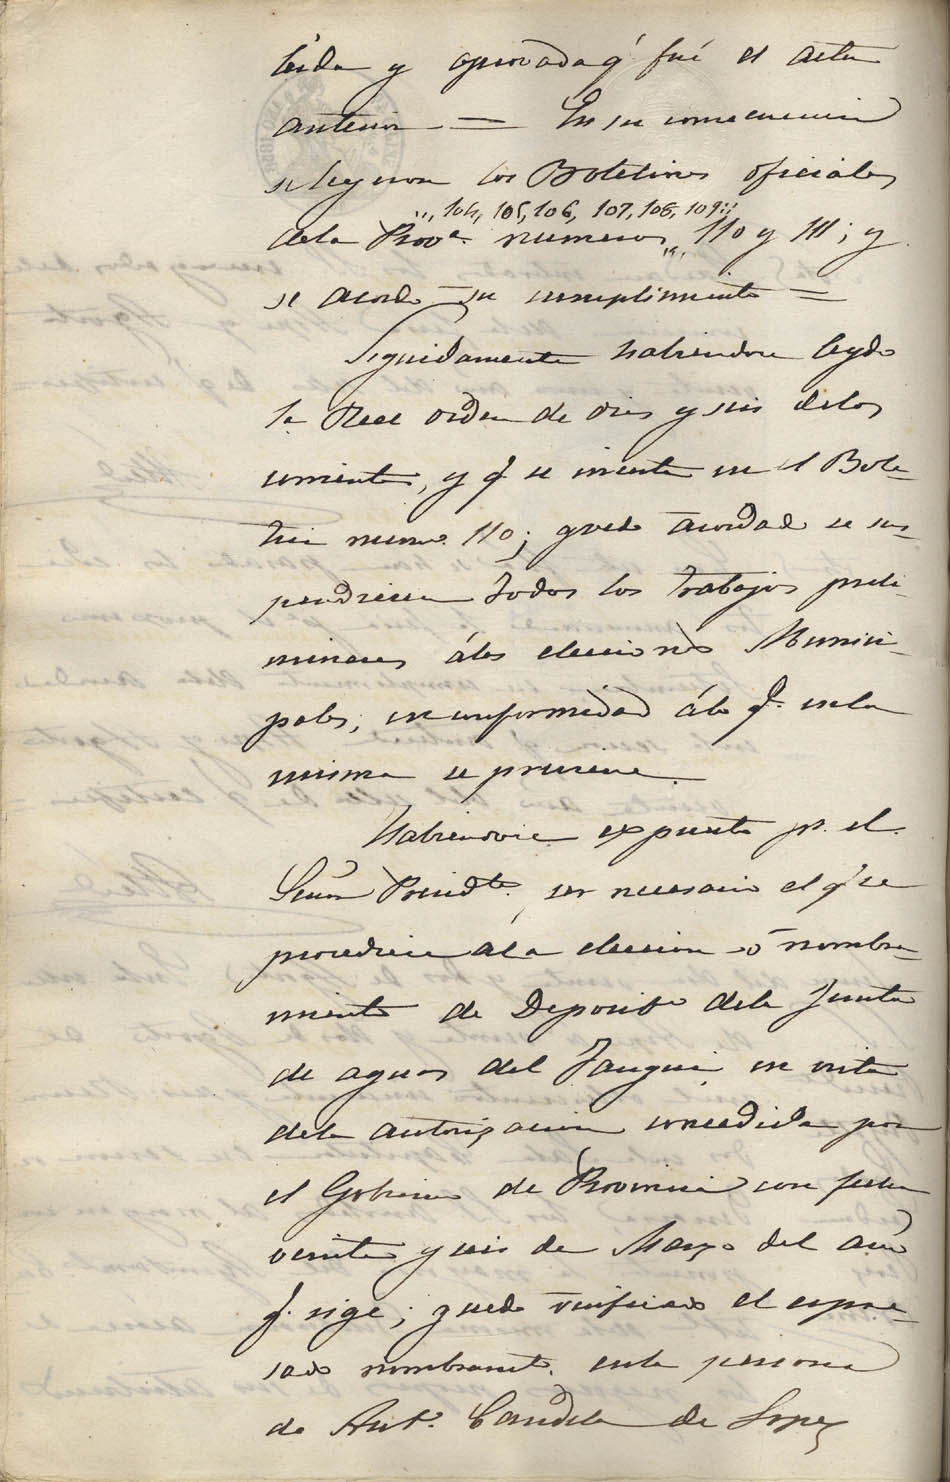 leida y aprovada q.e fué el acta
anterior = En su consecuencia
se leyeron los Boletines oficiales
,, 104, 105, 106, 107, 108, 109,,
de la Prov.a numeros 110 y 111; y
se acordo su cumplimiento =
Seguidamente habiendose leydo
la Real orden de dies y seis de los
corrientes, y q.e se inserta en el Bole-
tin numo. 110; quedo acordado se sus-
pendiesen todos los trabajos preli-
minares á las elecciones Munici-
pales, en conformidad á lo q.e en la
misma se previene.
Habiendose expuesto p.r el
Señor Presid.te ser necesario el q.e se
procediese a la eleccion ó nombra-
miento de Deposit.o de la Junta
de aguas del en vista
de la autorizacion concedida por
el Gobierno de Provincia con fecha
veinte y seis de Marzo del año
q.e rige; quedo verificado el espre-
sado nombramt.o en la persona
de Ant.o Candela de Lopez